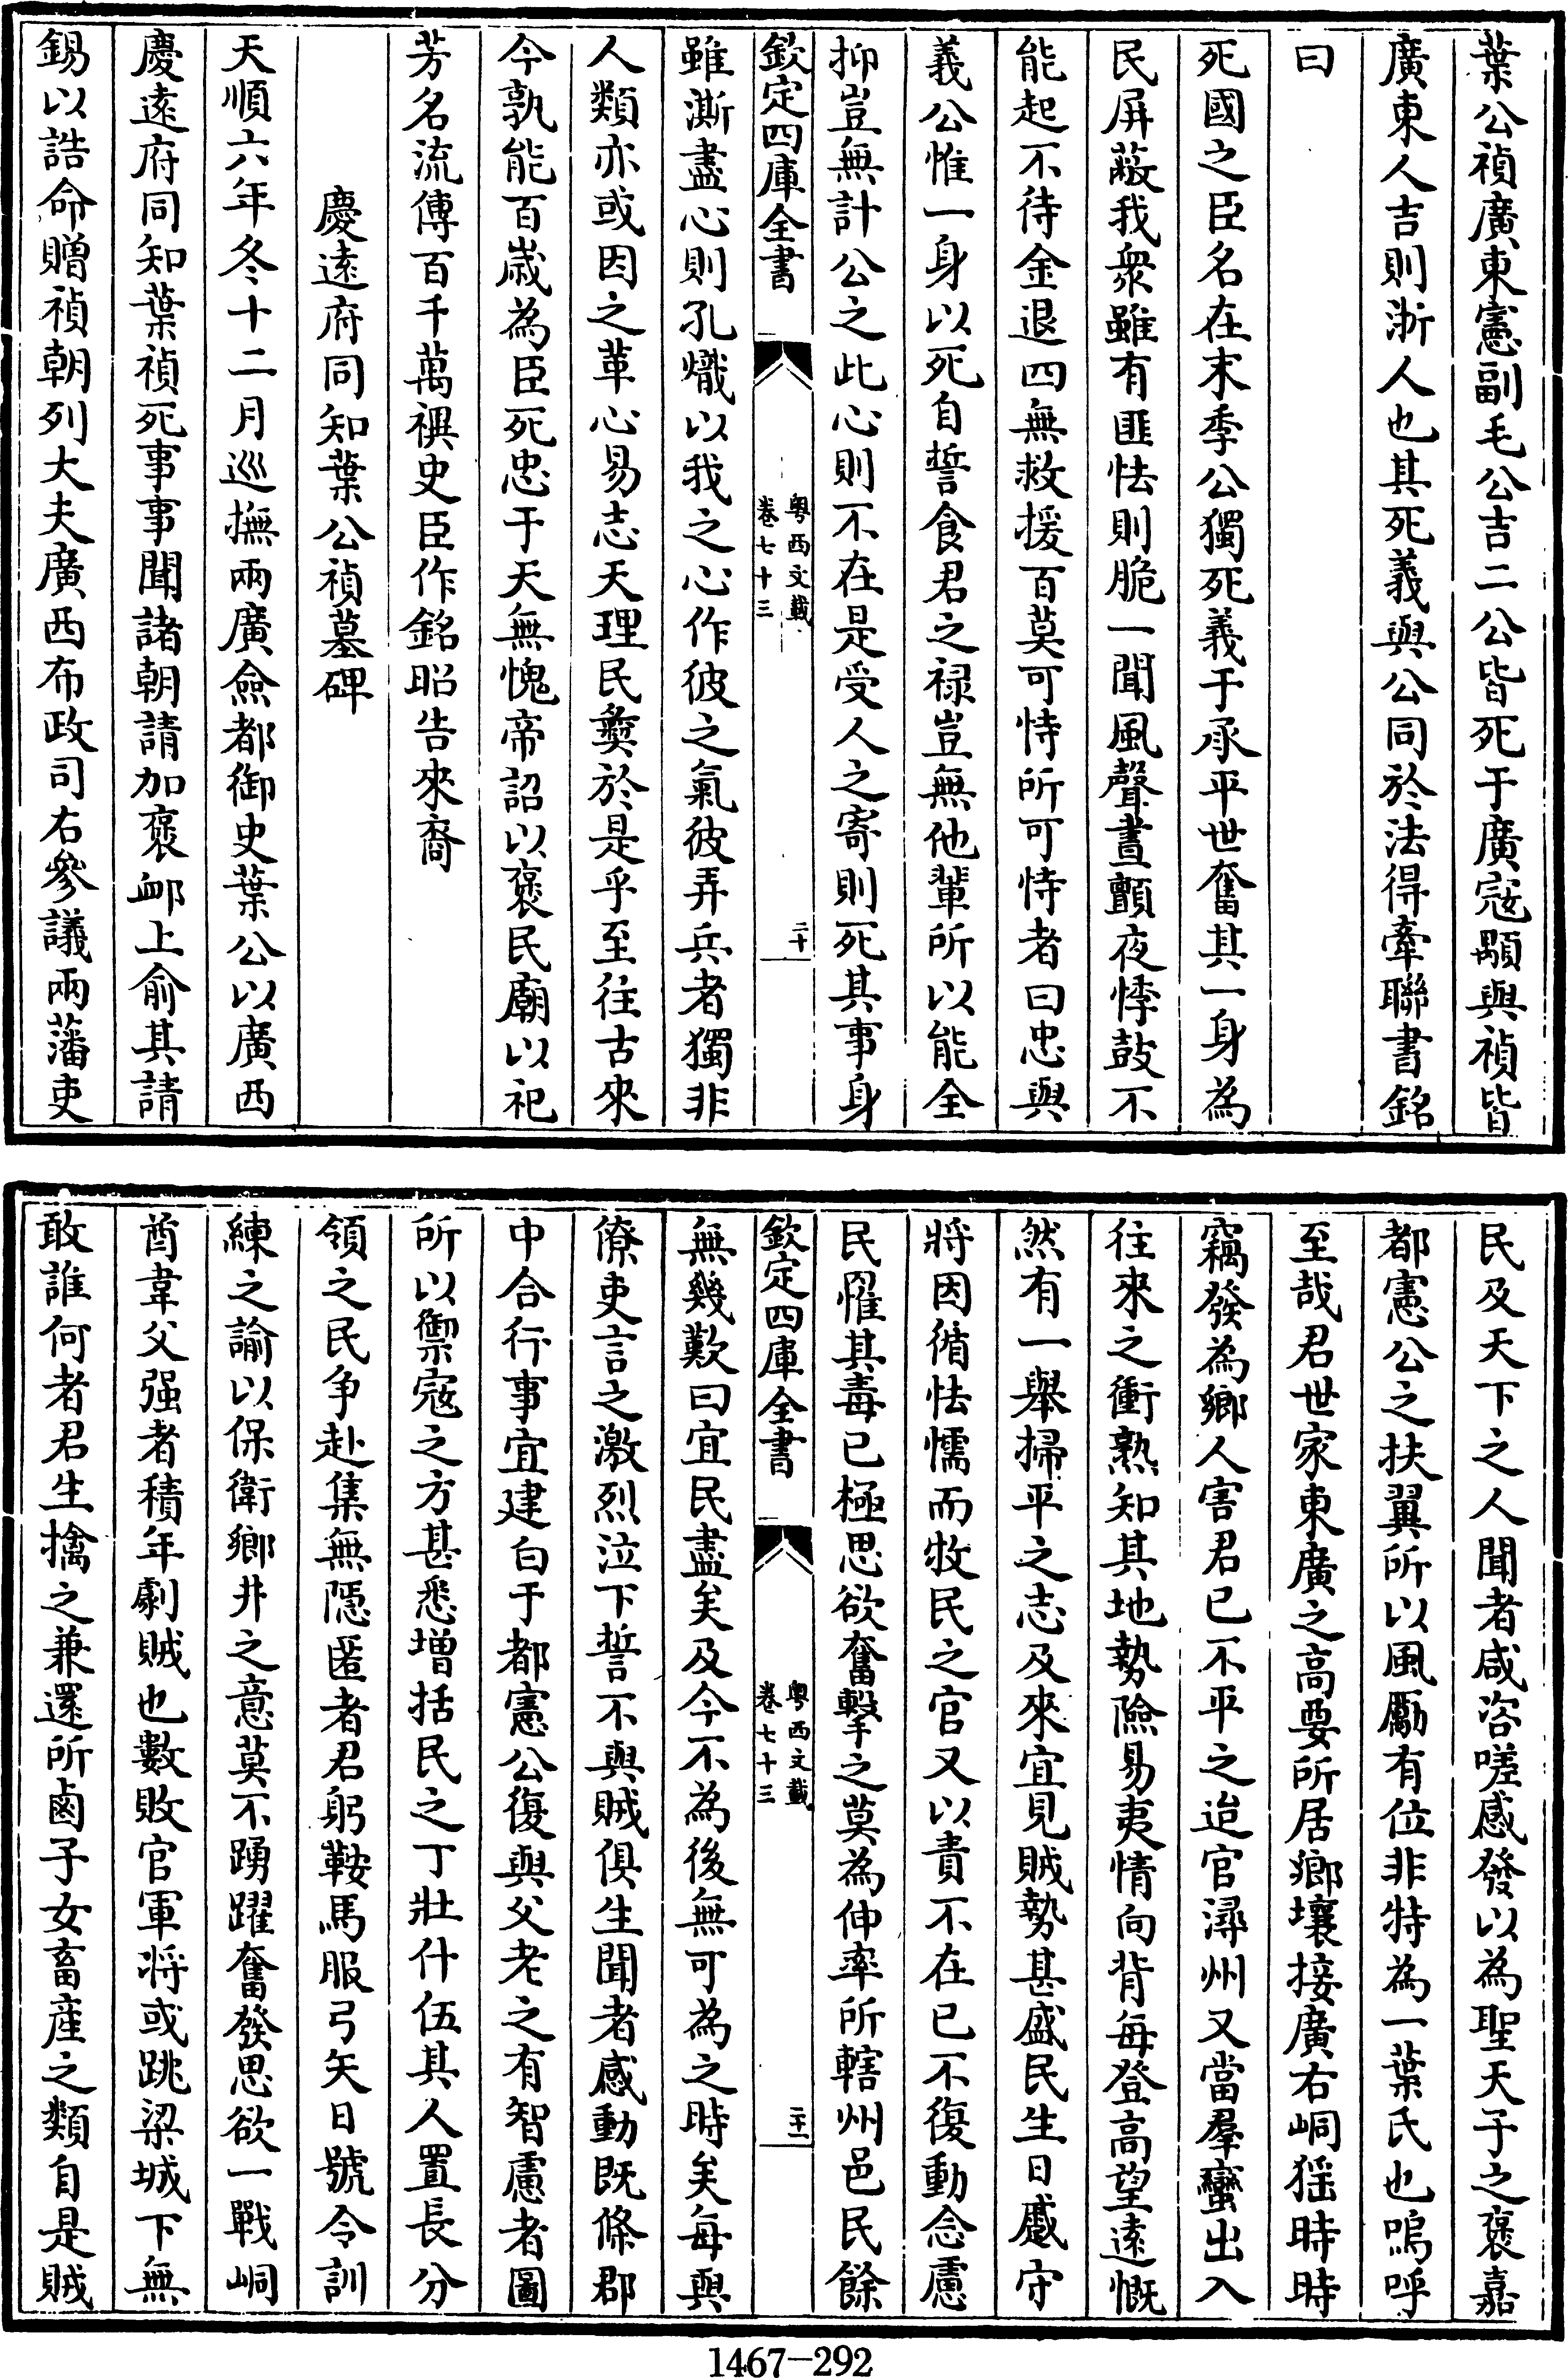 葉公禎廣東憲副毛公吉二公皆死于廣寇顒與禎皆
廣東人吉則浙人也其死義與公同於法得牽聯書銘
曰
死國之臣名在末季公獨死義于承平世奮其一身為
民屏蔽我衆雖有匪怯則脆一聞風聲晝顫夜悸鼓不
能起不待金退四無救援百莫可恃所可恃者曰忠與
義公惟一身以死自誓食君之禄豈無他輩所以能全
抑豈無計公之此心則不在是受人之寄則死其事身
欽定四庫全書
粤西文載
卷七十三
二十
雖澌盡心則孔熾以我之心作彼之氣彼弄兵者獨非
人類亦或因之革心易志天理民彝於是乎至往古來
今孰能百歳為臣死忠于天無愧帝詔以褒民廟以祀
芳名流傳百千萬禩史臣作銘昭告來裔
慶遠府同知葉公禎墓碑
天順六年冬十二月巡撫兩廣僉都御史葉公以廣西
慶遠府同知葉禎死事事聞諸朝請加褒卹上俞其請
錫以誥命贈禎朝列大夫廣西布政司右參議兩藩吏
民及天下之人聞者咸咨嗟感發以為聖天子之褒嘉
都憲公之扶翼所以風勵有位非特為一葉氏也嗚呼
至哉君世家東廣之高要所居鄉壤接廣右峒猺時時
竊發為鄉人害君已不平之迨官潯州又當羣蠻出入
往來之衝熟知其地勢險易夷情向背每登高望遠慨
然有一舉掃平之志及來宜見賊勢甚盛民生日蹙守
將因循怯懦而牧民之官又以責不在已不復動念慮
民罹其毒已極思欲奮擊之莫為伸率所轄州邑民餘
欽定四庫全書
粤西文載
卷七十三
二十一
無幾歎曰宜民盡矣及今不為後無可為之時矣每與
僚吏言之激烈泣下誓不與賊俱生聞者感動既條郡
中合行事宜建白于都憲公復與父老之有智慮者圖
所以禦寇之方甚悉増括民之丁壯什伍其人置長分
領之民争赴集無隱匿者君躬鞍馬服弓矢日號令訓
練之諭以保衛鄉井之意莫不踴躍奮發思欲一戰峒
酋韋父强者積年劇賊也數敗官軍将或跳梁城下無
敢誰何者君生擒之兼還所鹵子女畜産之類自是賊
1467-292